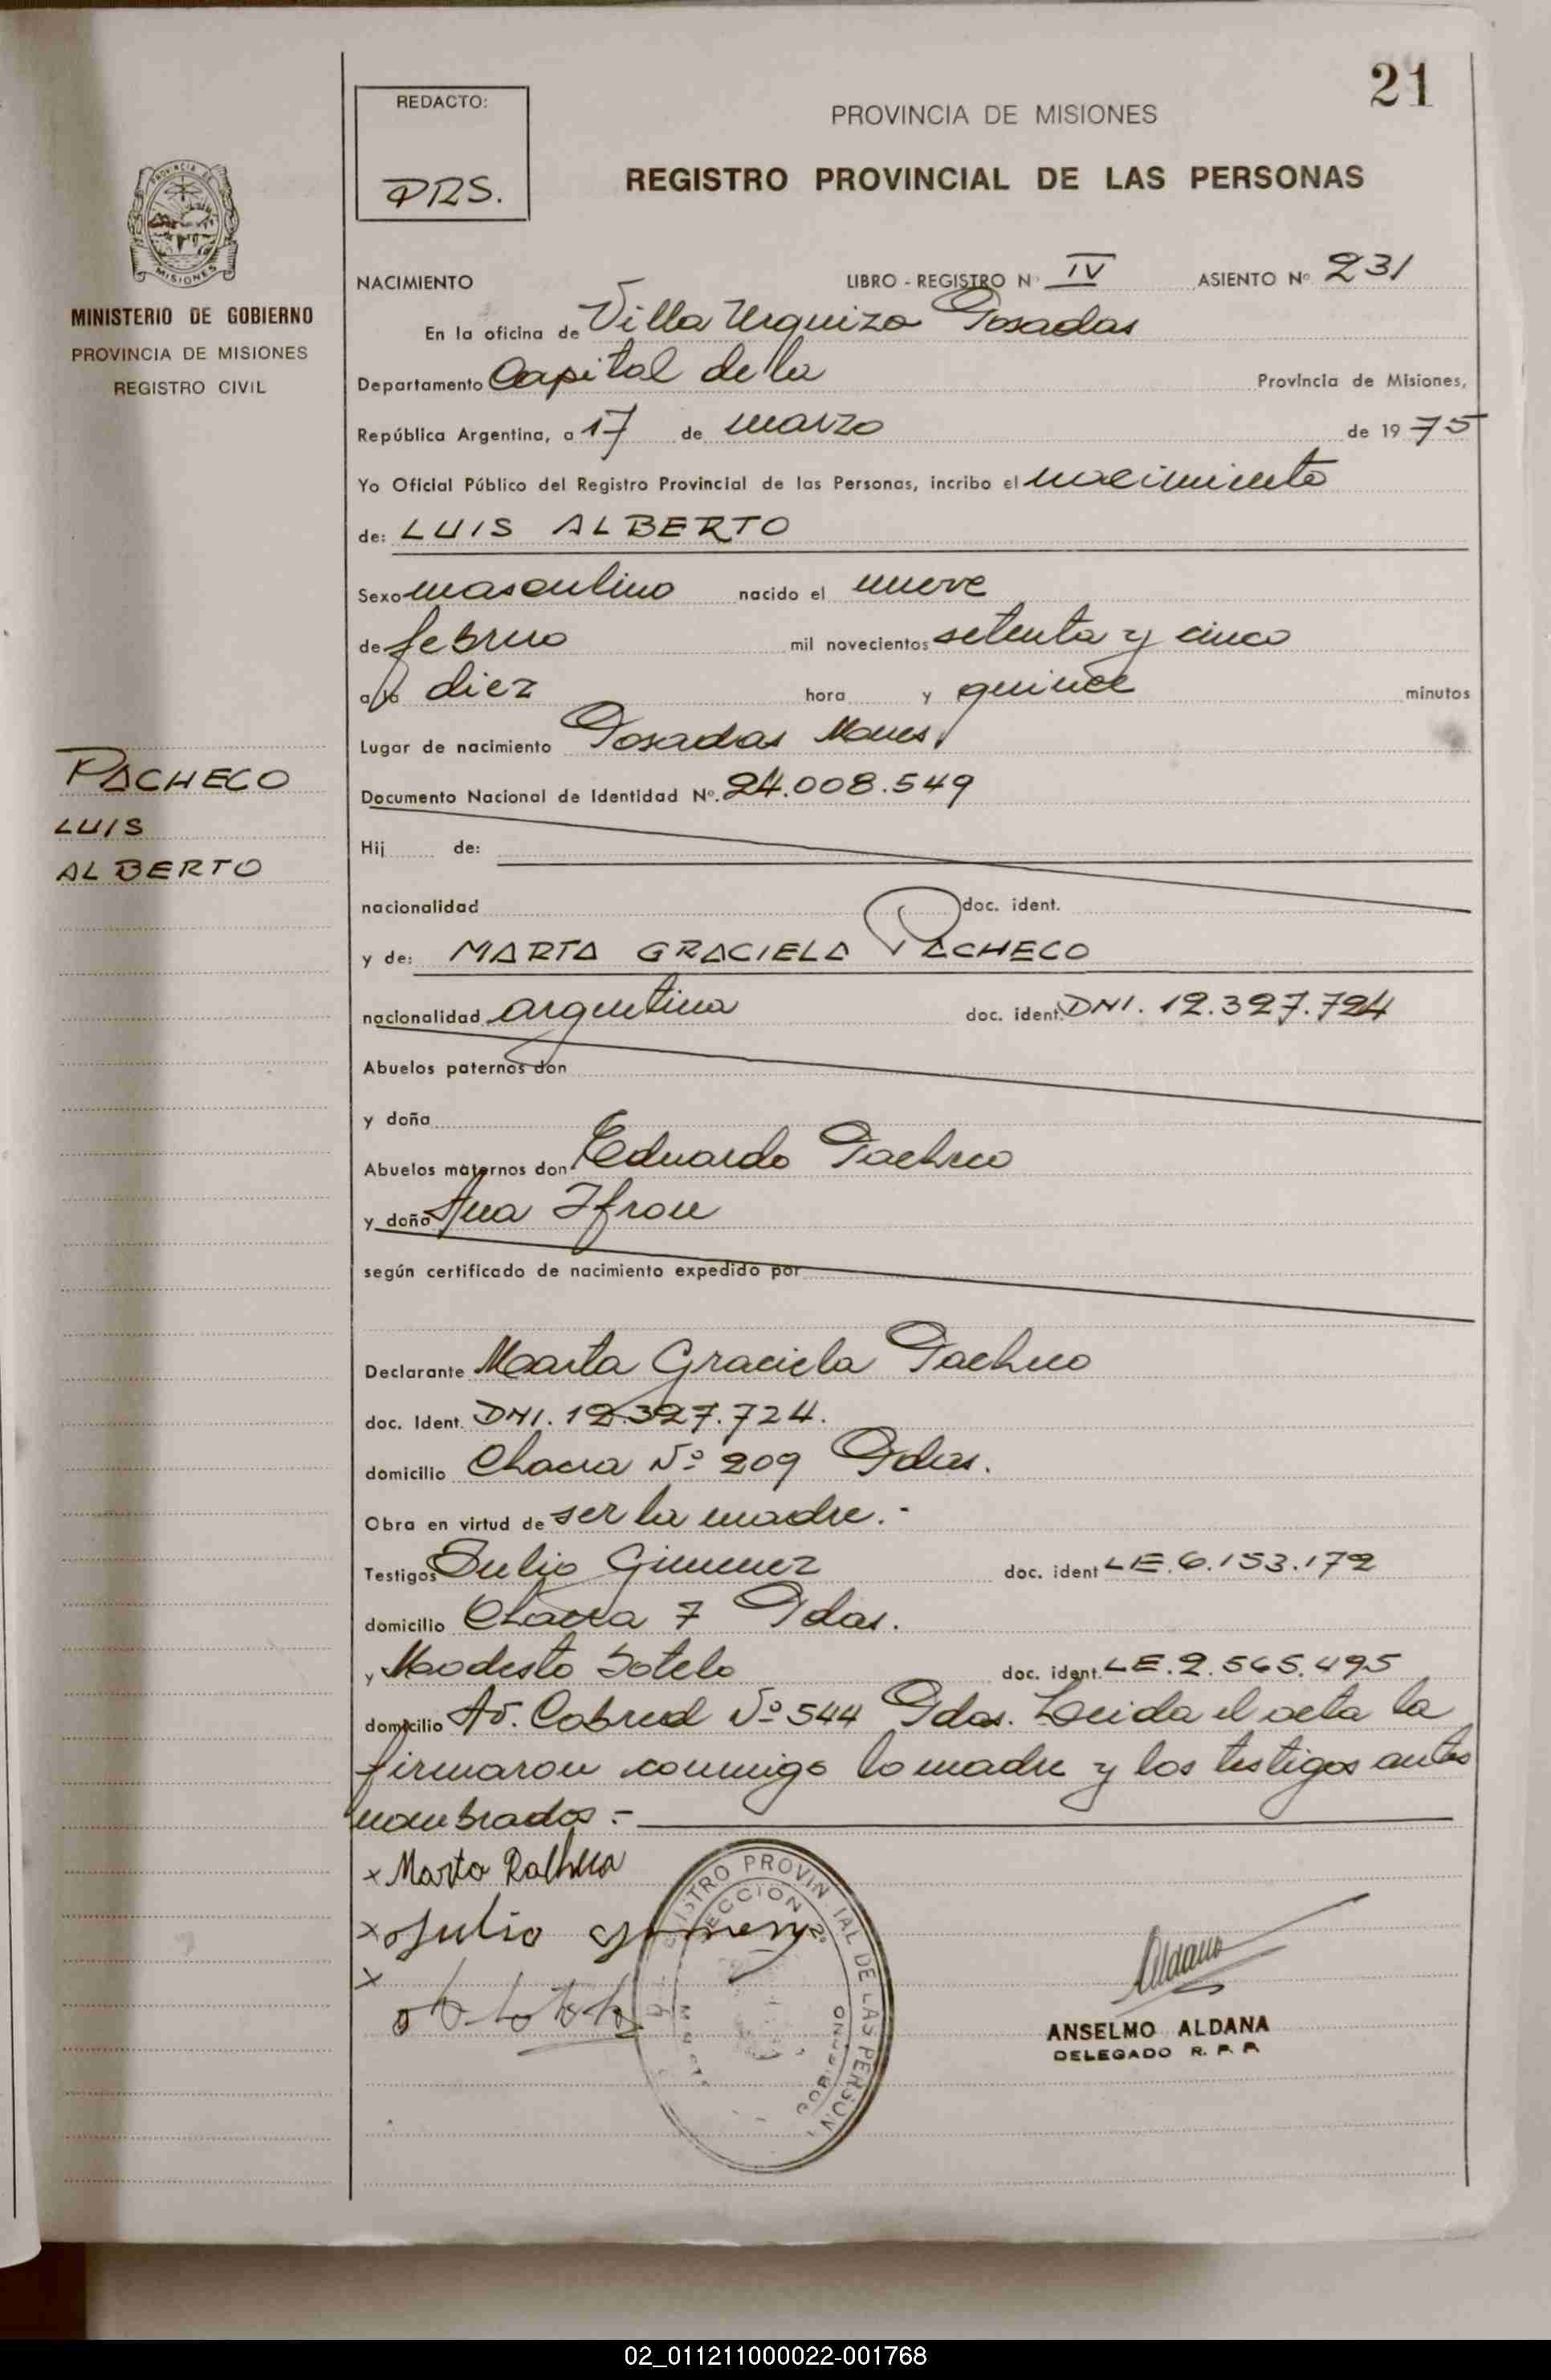 21
REDACTO:
PRS.
PROVINCIA DE MISIONES
REGISTRO PROVINCIAL DE LAS PERSONAS
PROVINCIA DE
MISIONES
MINISTERIO DE GOBIERNO
PROVINCIA DE MISIONES
REGISTRO CIVIL
PACHECO
LUIS
ALBERTO
NACIMIENTO LIBRO - REGISTRO Nº IV ASIENTO Nº 231
En la oficina de Villa Urquiza Posadas
Departamento Capital de la Provincia de Misiones,
República Argentina, a 17 de marzo de 1975
Yo Oficial Público del Registro Provincial de las Personas, incribo el nacimiento
de: LUIS ALBERTO
Sexo masculino nacido el nueve
de febrero mil novecientos setenta y cinco
a la diez hora y quince minutos
Lugar de nacimiento Posadas Mnes.
Documento Nacional de Identidad Nº. 24.008.549
Hij de:
nacionalidad doc. ident.
y de: MARTA GRACIELA PACHECO
nacionalidad argentina doc. ident. DNI. 12.327.724
Abuelos paternos don
y doña
Abuelos maternos don Eduardo Pacheco
y doña Ana Ifron
según certificado de nacimiento expedido por
Declarante Marta Graciela Pacheco
doc. Ident. DNI. 12.327.724.
domicilio Chacra Nº 209 Pdas.
Obra en virtud de ser la madre.-
Testigos Julio Gimenez doc. ident LE. 6.153.172
domicilio Chacra 7 Pdas.
y Modesto Sotelo doc. ident. LE. 2.565.495
domicilio Av. Cabred Nº 544 Pdas. Leida el acta la
firmaron conmigo la madre y los testigos antes
nombrados.-
x Marta
x Julio
x
REGISTRO PROVINCIAL DE LAS PERSON
SECCION 2ª
GOBIERNO
Aldana
ANSELMO ALDANA
DELEGADO R. P. P.
02_011211000022-001768